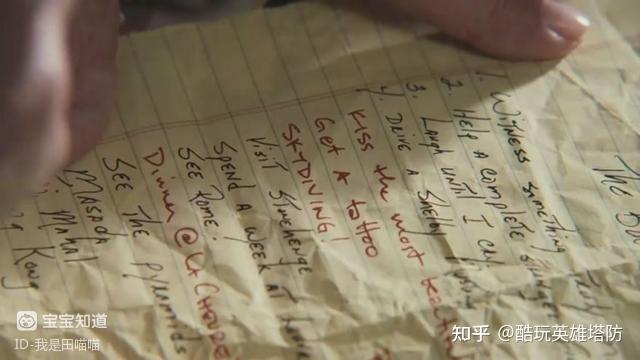 The
1. Witness something
2. Help a complete
3. Laugh until I cry
4. Drive a Shelby
Kiss the most
Get a tattoo
SKYDIVING!
Visit Stonehenge
Spend a week at
See Rome.
Dinner @
See The pyramids
Masada
Mahal
Kong
宝宝知道
ID-我是田喵喵
知乎 @酷玩英雄塔防